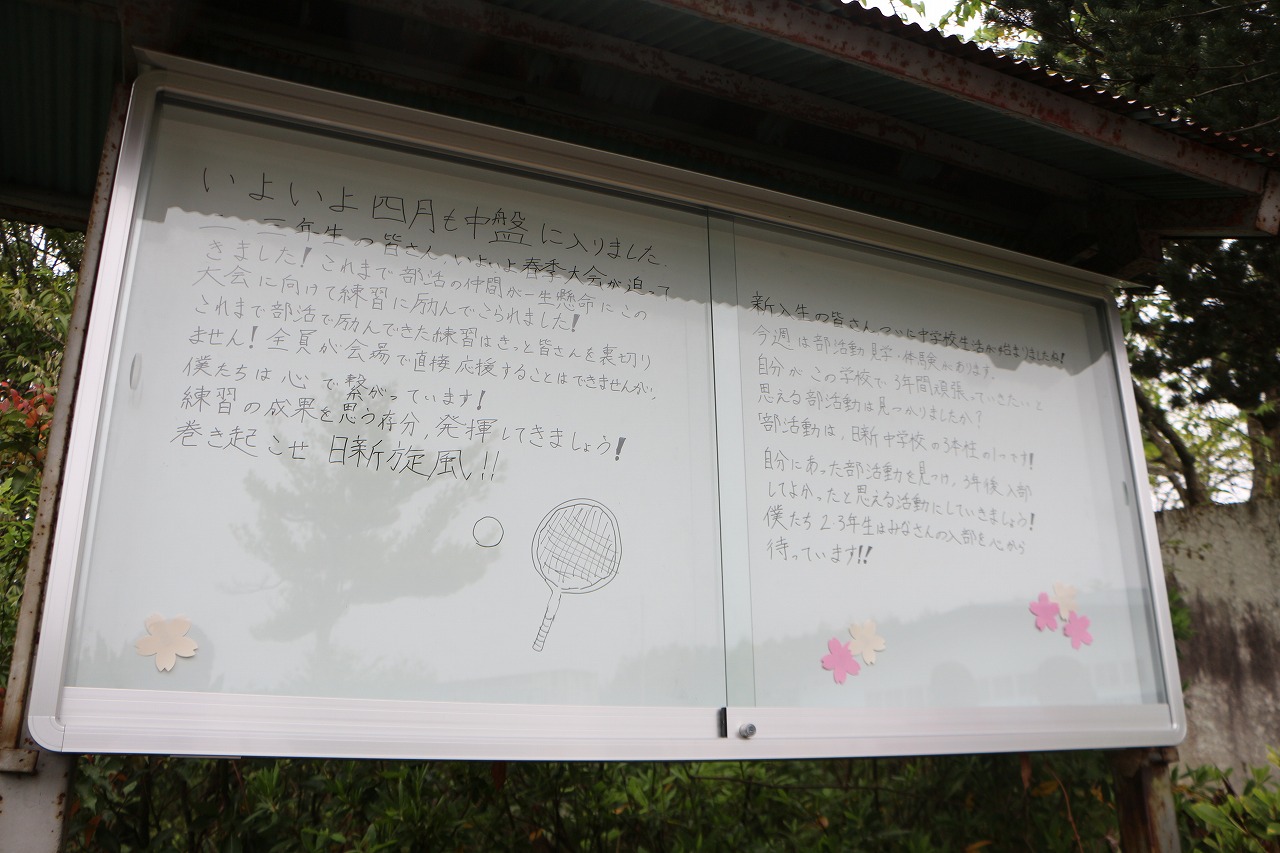 いよいよ四月も中盤に入りました。
二・三年生の皆さん、いよいよ春季大会が迫って
きました！これまで部活の仲間が一生懸命にこの
大会に向けて練習に励んでこられました！
これまで部活で励んできた練習はきっと皆さんを裏切り
ません！全員が会場で直接応援することはできませんが、
僕たちは心で繋がっています！
練習の成果を思う存分、発揮してきましょう！
巻き起こせ 日新旋風!!
新入生の皆さん、ついに中学校生活が始まりましたね！
今週は部活動見学・体験があります。
自分がこの学校で3年間頑張っていきたいと
思える部活動は見つかりましたか？
部活動は、日新中学校の3本柱の1つです！
自分にあった部活動を見つけ、3年後入部
してよかったと思える活動にしていきましょう！
僕たち2・3年生はみなさんの入部を心から
待っています!!